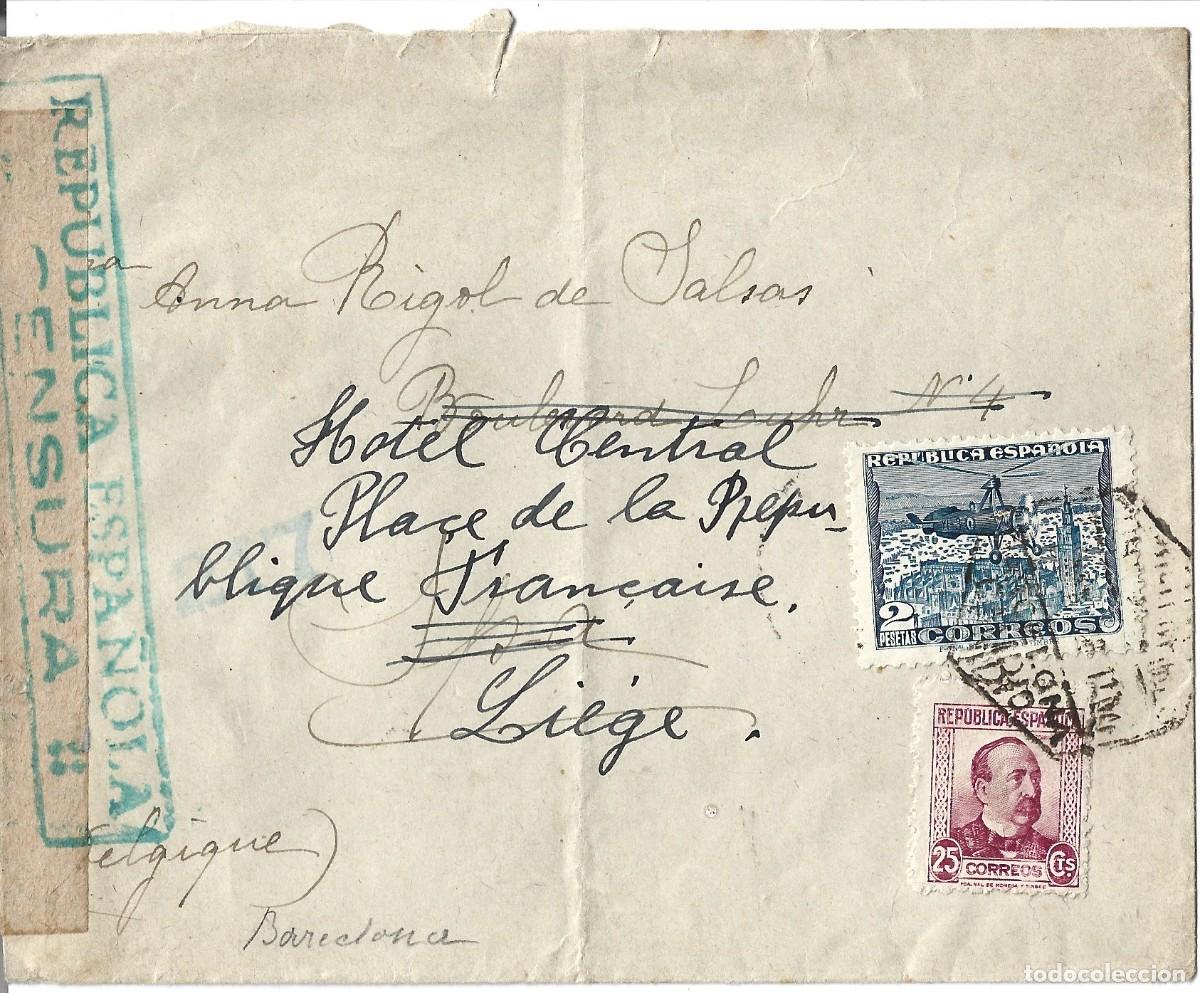 REPUBLICA ESPAÑOLA
CENSURA ::
Anna Rigol de Salsas
Boulevard N: 4
Hotel Central
Place de la Répu-
blique Française.
Spa
Liége.
elgique)
Barcelona
REPUBLICA ESPAÑOLA
2
PESETAS CORREOS
REPÚBLICA ESPAÑOLA
25 CORREOS Cts.
todocoleccion